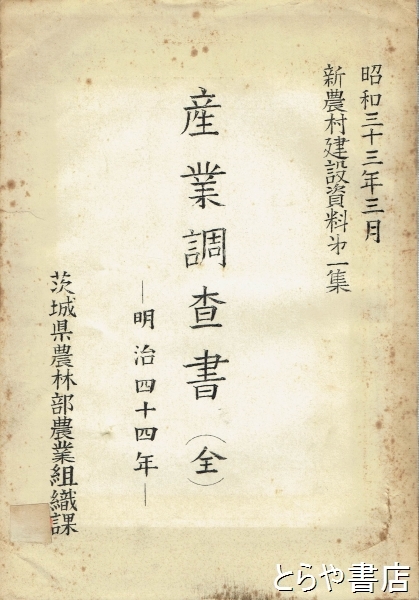 昭和三十三年三月
新農村建設資料㐧一集
産業調査書（全）
—明治四十四年—
茨城県農林部農業組織課
とらや書店